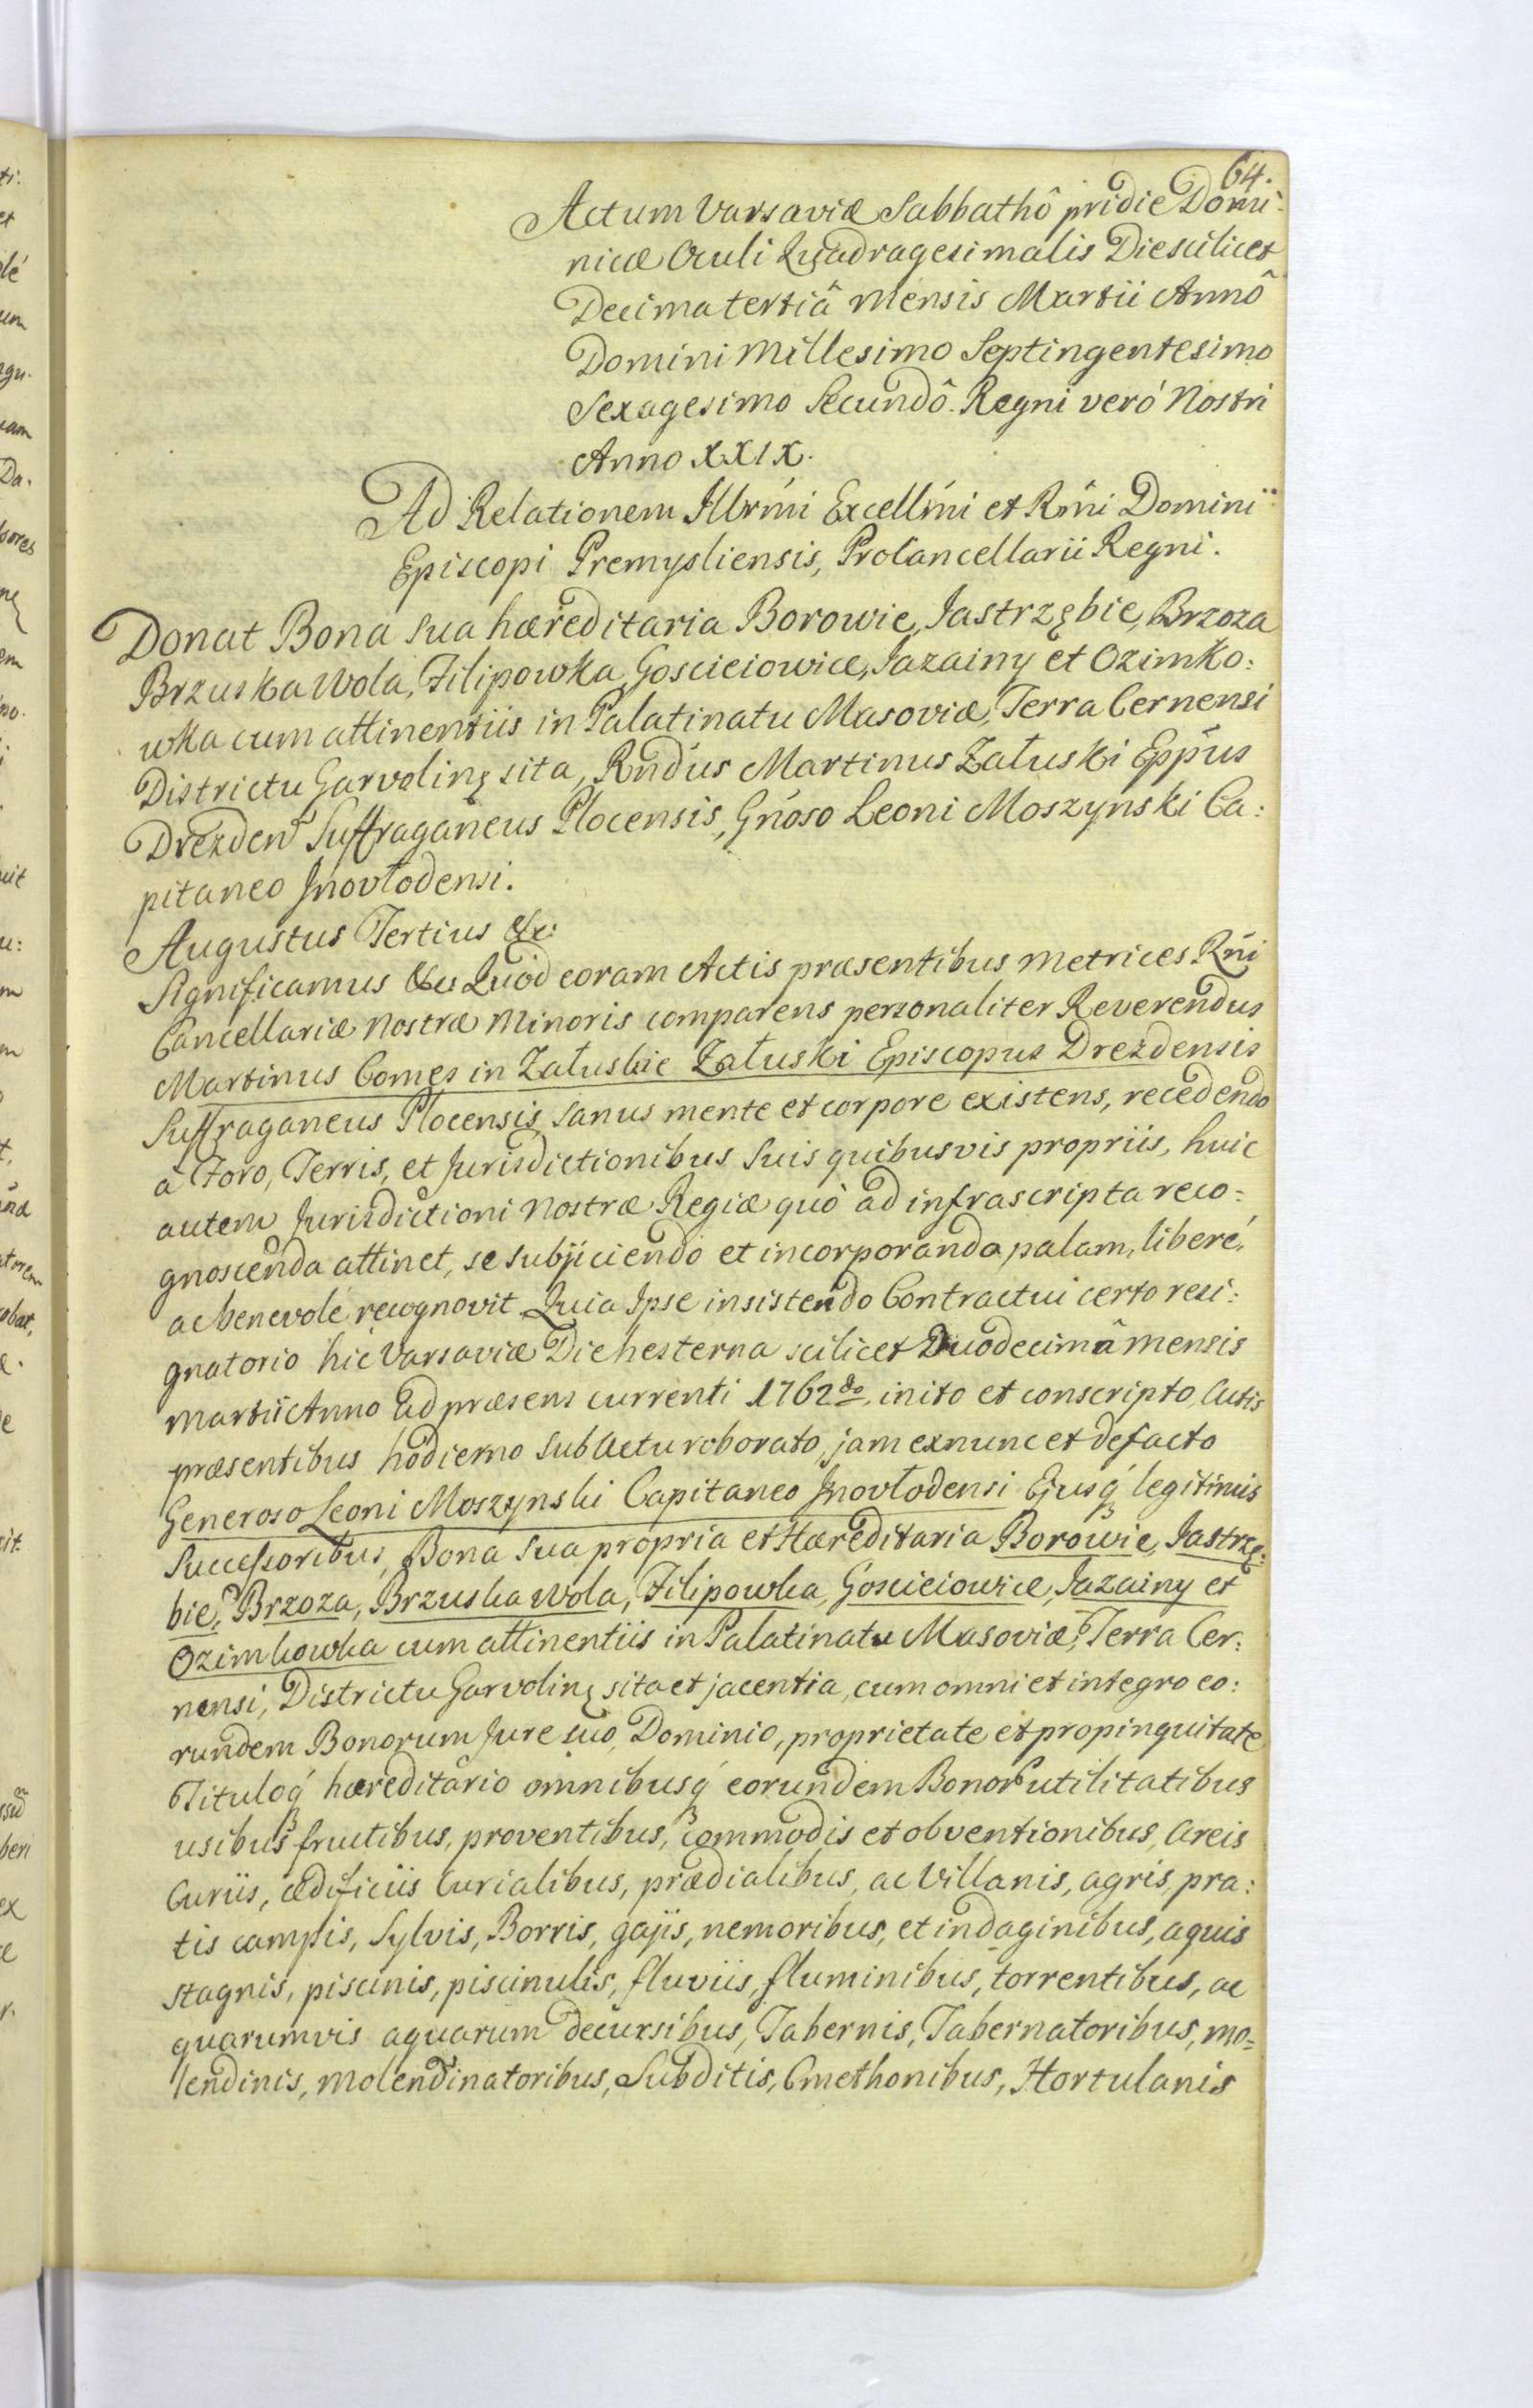 64.
Actum Varsaviæ Sabbathô pridie Domi-
nicæ Oculi Quadragesimalis Die scilicet
Decima tertiâ mensis Martii Annô
Domini Millesimo Septingentesimo
Sexagesimo Secundô. Regni veró Nostri
Anno XXIX.
Ad Relationem Illrmi Excellmi et Rmi Domini
Episcopi Premysliensis, Procancellarii Regni.
Donat Bona sua hæreditaria Borowie, Jastrzębie, Brzoza
Brzuska Wola, Filipowka, Goscieiowice, Jazainy et Ozimko:
wka cum attinentiis in Palatinatu Masoviæ, Terra Cernensi
Districtu Garvolinę sita, Rndus Martinus Załuski Eppus
Drezden Suffraganeus Plocensis, Gnoso Leoni Moszynski Ca:
pitaneo Jnovłodensi.
Augustus Tertius &c:
Significamus &c: Quod coram Actis præsentibus Metrices Rni
Cancellariæ Nostræ Minoris comparens personaliter Reverendus
Martinus Comes in Załuskie Załuski Episcopus Drezdensis
Suffraganeus Plocensis, sanus mente et corpore existens, recedendo
à Foro, Terris, et Jurisdictionibus suis quibusvis propriis, huic
autem Jurisdictioni Nostræ Regiæ quò ad infrascripta reco:
gnoscenda attinet, se subjiciendo et incorporando, palam, liberé,
ac benevolé recognovit. Quia Ipse insistendo Contractui certo resi:
gnatorio hic Varsaviæ Die hesterna scilicet Duodecimâ mensis
Martii Anno ad præsens currenti 1762do. inito et conscripto, Actis
præsentibus hodierno sub actu roborato, jam exnunc et defacto
Generoso Leoni Moszynski Capitaneo Jnovłodensi Ejusq legitimis
Successoribus, Bona sua propria et Hæreditaria Borowie, Jastrzę:
bie, Brzoza, Brzuska Wola, Filipowka, Goscieiowice, Jazainy et
Ozimkowka cum attinentiis in Palatinatu Masoviæ, Terra Cer:
nensi, Districtu Garvolinę sita et jacentia, cum omni et integro eo:
rundem Bonorum Jure suo, Dominio, proprietate et propinquitate
Tituloq hæreditario omnibusq eorundem Bonor utilitatibus
usibus fructibus, proventibus, commodis et obventionibus, Areis
Curiis, ædificiis Curialibus, prædialibus, ac Villanis, agris, pra:
tis campis, Sylvis, Borris, gajis, nemoribus, et indaginibus, aquis
stagnis, piscinis, piscinulis, fluviis, fluminibus, torrentibus, ac
quarumvis aquarum decursibus, Tabernis, Tabernatoribus, mo=
lendinis, molendinatoribus, Subditis, Cmethonibus, Hortulanis